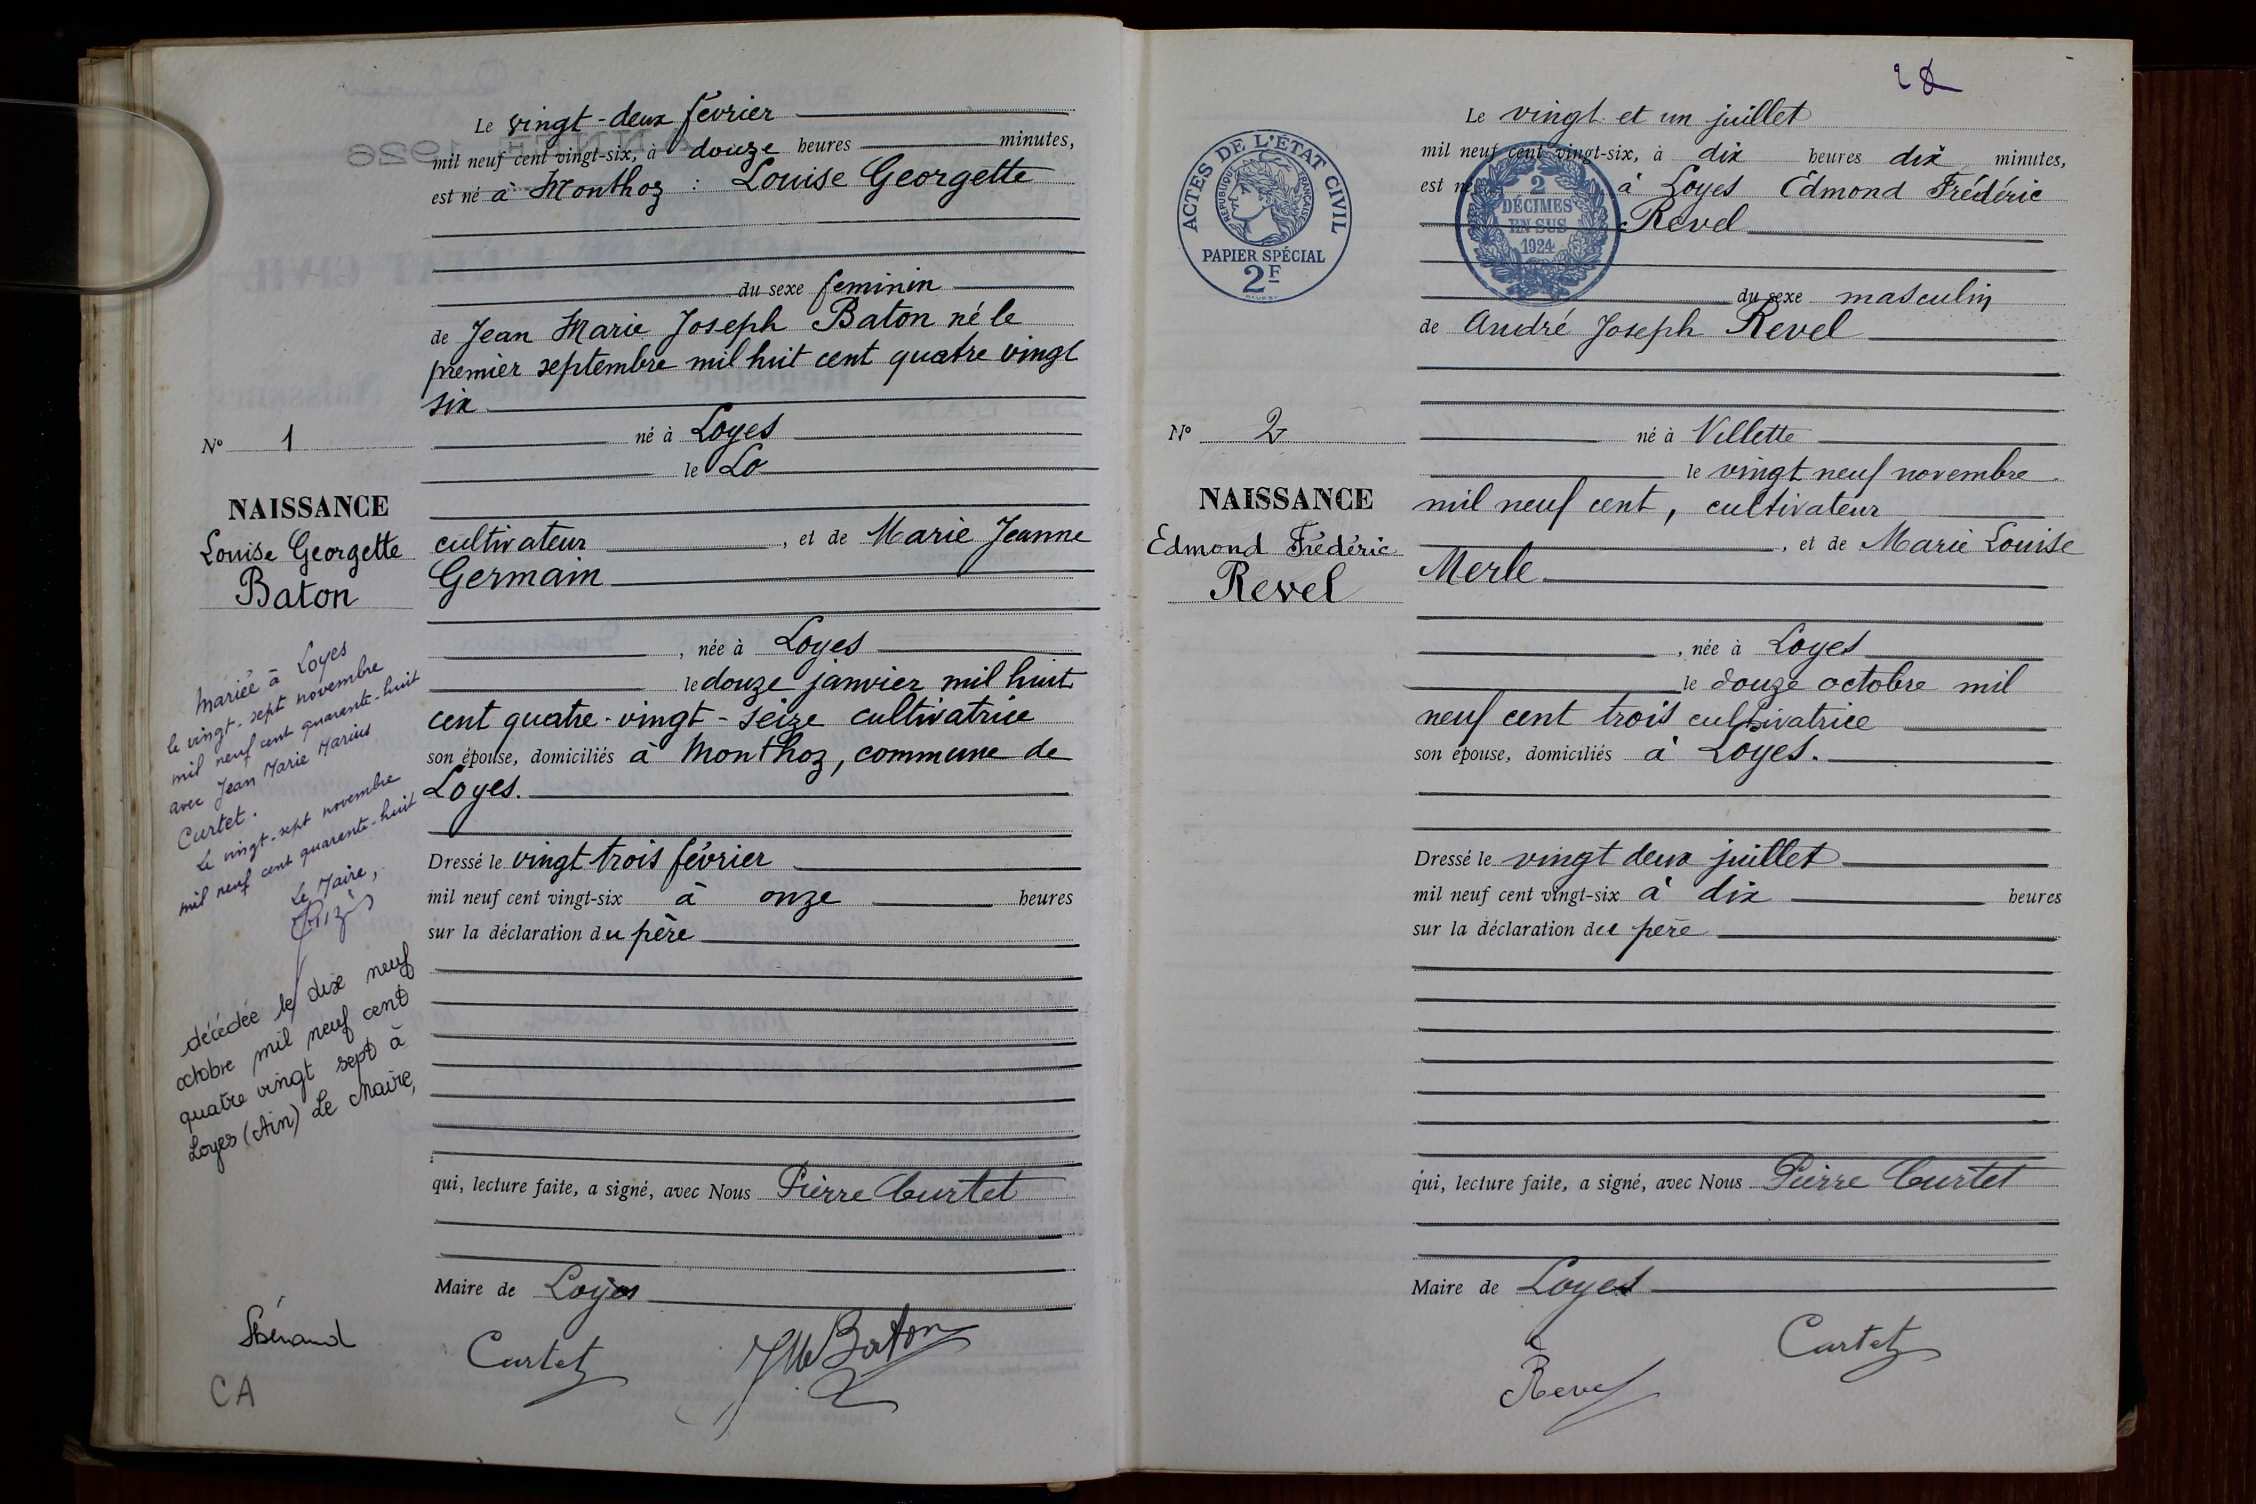 Le vingt-deux février
mil neuf cent vingt-six, à douze heures minutes,
est né à Monthoz : Louise Georgette
du sexe feminin
de Jean Marie Joseph Baton né le
premier septembre mil huit cent quatre vingt
six
né à Loyes
le Lo
cultivateur , et de Marie Jeanne
Germain
, née à Loyes
le douze janvier mil huit
cent quatre-vingt-seize cultivatrice
son épouse, domiciliés à Monthoz, commune de
Loyes.
Dressé le vingt trois février
mil neuf cent vingt-six à onze heures
sur la déclaration du père
qui, lecture faite, a signé, avec Nous Pierre Curtet
Maire de Loyes
Curtet JM Baton
N° 1
NAISSANCE
Louise Georgette
Baton
Mariée à Loyes
le vingt-sept novembre
mil neuf cent quarente-huit
avec Jean Marie Marius
Curtet.
Le vingt-sept novembre
mil neuf cent quarente-huit
Le Maire,
décédée le dix neuf
octobre mil neuf cent
quatre vingt sept à
Loyes (Ain) Le Maire,
CA
ACTES DE L'ÉTAT CIVIL
RÉPUBLIQUE FRANÇAISE
PAPIER SPÉCIAL
2F
2
DÉCIMES
EN SUS
1924
Le vingt et un juillet
mil neuf cent vingt-six, à dix heures dix minutes,
est né à Loyes Edmond Frédéric
Revel
du sexe masculin
de André Joseph Revel
né à Villette
le vingt neuf novembre
mil neuf cent, cultivateur
, et de Marie Louise
Merle
, née à Loyes
le douze octobre mil
neuf cent trois cultivatrice
son épouse, domiciliés à Loyes.
Dressé le vingt deux juillet
mil neuf cent vingt-six à dix heures
sur la déclaration du père
qui, lecture faite, a signé, avec Nous Pierre Curtet
Maire de Loyes
Revel Curtet
N° 2
NAISSANCE
Edmond Frédéric
Revel